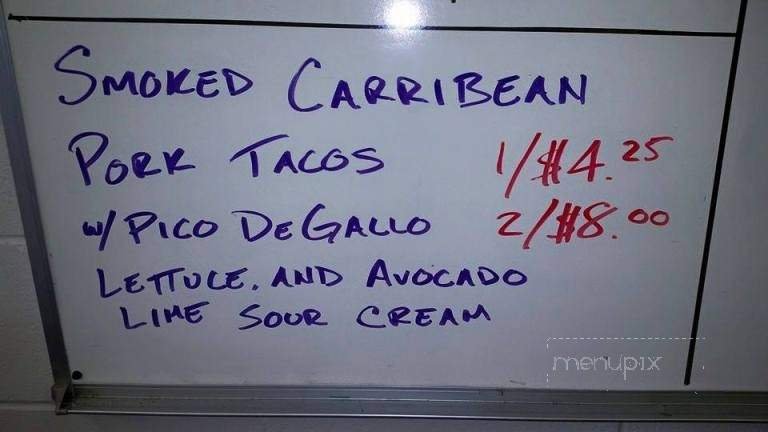 SMOKED CARRIBEAN
PORK TACOS 1/$4.25
W/ PICO DE GALLO 2/$8.00
LETTUCE, AND AVOCADO
LIME SOUR CREAM
menupix